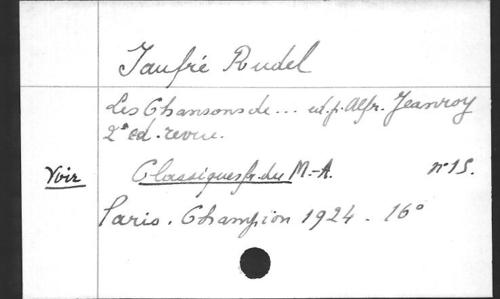 Jaufré Rudel
Les Chansons de... ed. p. Alfr. Jeanroy
2e ed. revue.
Voir Classiques fr. du M.-A. n° 15.
Paris. Champion 1924 - 16°